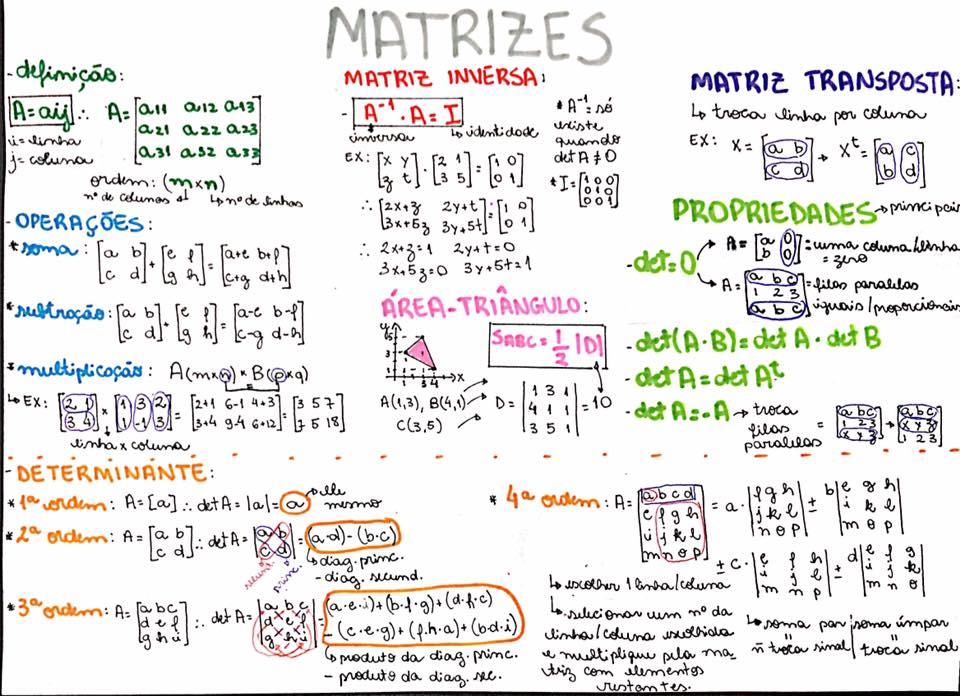 MATRIZES
- definição:
A = aij ∴ A = [a11 a12 a13
a21 a22 a23
a31 a32 a33]
i = linha
j = coluna
ordem: (m×n)
nº de colunas ↲ ↳ nº de linhas
- OPERAÇÕES:
* soma: [a b
c d] + [e f
g h] = [a+e b+f
c+g d+h]
* subtração: [a b
c d] + [e f
g h] = [a-e b-f
c-g d-h]
* multiplicação: A(m×n) × B(p×q)
↳ EX: [2 1
3 4] × [1 3 2
1 -1 3] = [2+1 6-1 4+3
3+4 9-4 6+12] = [3 5 7
7 5 18]
linha x coluna
MATRIZ INVERSA:
- A⁻¹ · A = I
inversa ↳ identidade
* A⁻¹ só
existe
quando
det A ≠ 0
* I = [1 0 0
0 1 0
0 0 1]
EX: [x y
z t] · [2 1
3 5] = [1 0
0 1]
∴ [2x+z 2y+t
3x+5z 3y+5t] = [1 0
0 1]
∴ 2x+z=1 2y+t=0
3x+5z=0 3y+5t=1
ÁREA-TRIÂNGULO:
y
5
3
1
1 3 4 x
SABC = 1/2 |D|
A(1,3), B(4,1)
C(3,5)
D = |1 3 1
4 1 1
3 5 1| = 10
MATRIZ TRANSPOSTA:
↳ troca linha por coluna
EX: X = [a b
c d] → Xᵗ = [a c
b d]
PROPRIEDADES → principais
- det = 0
A = [a 0
b 0] = uma coluna/linha
= zero
A = [a b c
1 2 3
a b c] = filas paralelas
iguais/proporcionais
- det(A·B) = det A · det B
- det A = det Aᵗ
- det A = -A → troca
filas
paralelas
= [a b c
1 2 3
x y z] → [a b c
x y z
1 2 3]
- DETERMINANTE:
* 1ª ordem: A = [a] ∴ det A = |a| = a → ele
mesmo
* 2ª ordem: A = [a b
c d] ∴ det A = |a b
c d| = (a·d) - (b·c)
secund. princ.
↳ diag. princ.
- diag. secund.
* 3ª ordem: A = [a b c
d e f
g h i] ∴ det A = |a b c
d e f
g h i| = (a·e·i)+(b·f·g)+(d·h·c)
- (c·e·g)+(f·h·a)+(b·d·i)
↳ produto da diag. princ.
- produto da diag. sec.
* 4ª ordem: A = [a b c d
e f g h
i j k l
m n o p] = a · |f g h
j k l
n o p| ± b |e g h
i k l
m o p|
± c · |e f h
i j l
m n p| ± d |e f g
i j k
m n o|
↳ escolher 1 linha/coluna
↳ selecionar um nº da
linha/coluna escolhida
e multiplique pela ma-
triz com elementos
restantes.
↳ soma par
ñ troca sinal
soma ímpar
troca sinal